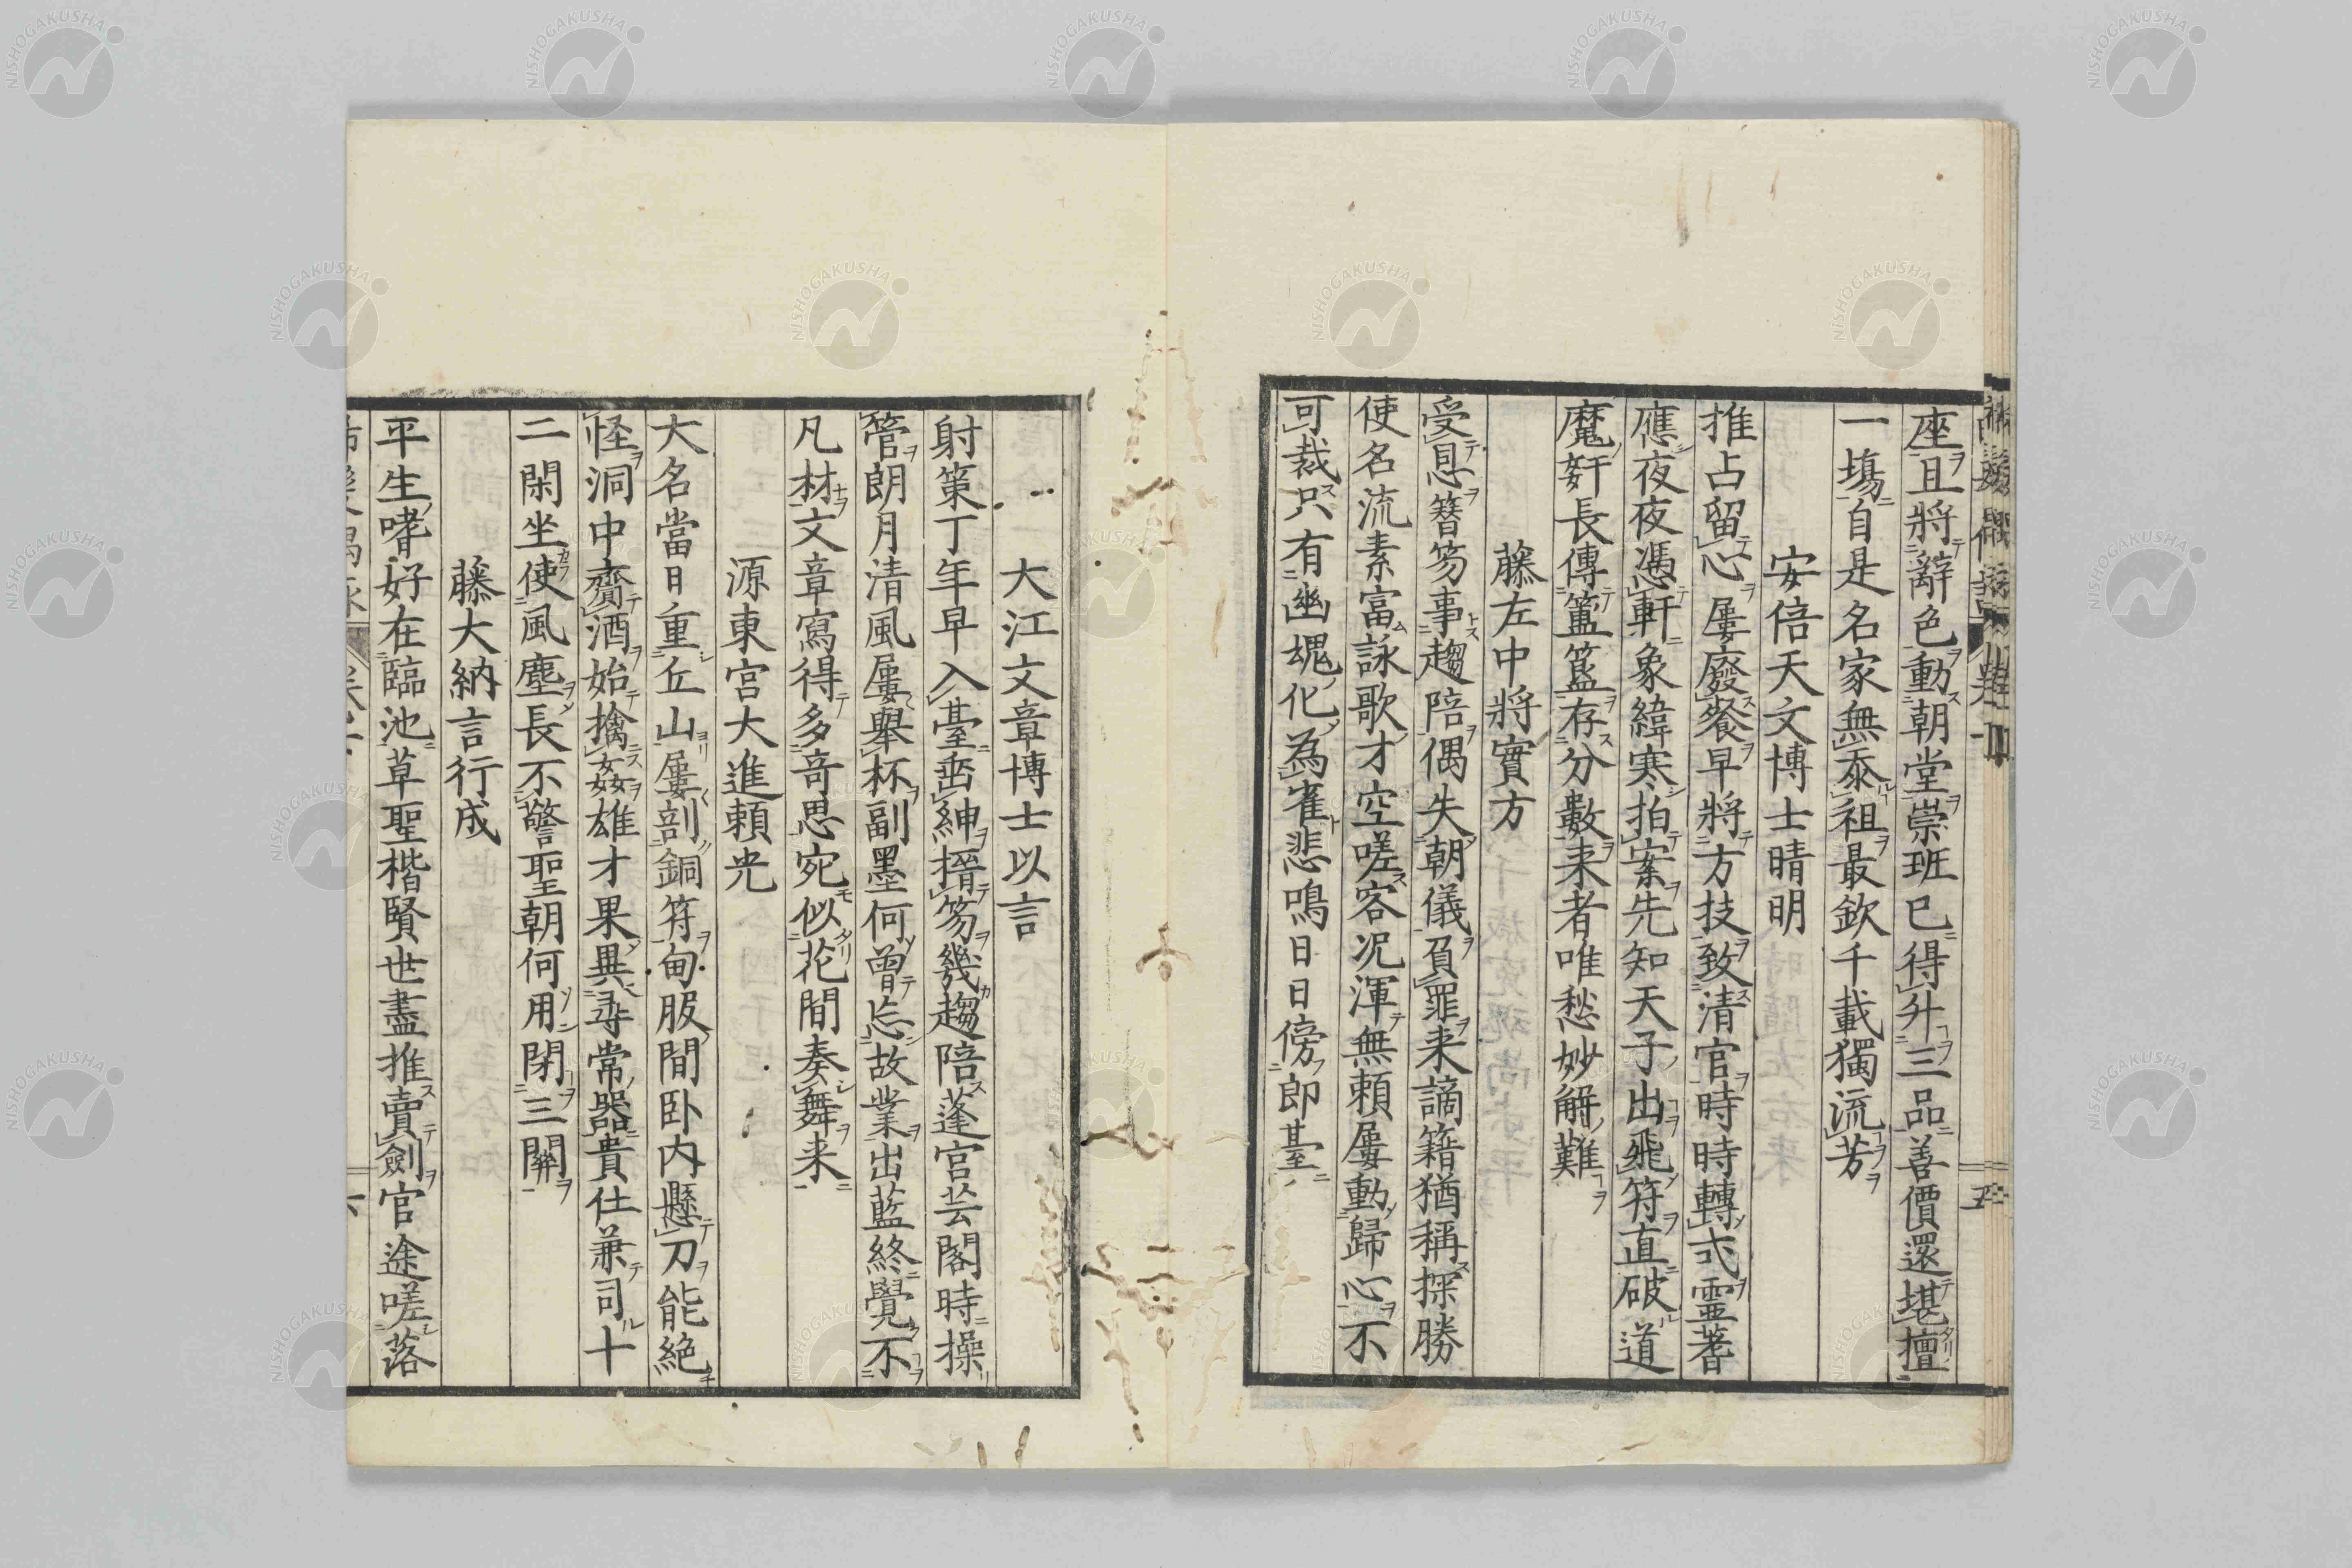 座且將辭色動朝堂崇班已得升三品善價還堪擅
一塲自是名家無忝祖最欽千載獨流芳
安倍天文博士晴明
推占留心屢廢餐早將方技致清官時時轉式靈蓍
應夜夜憑軒象緯寒拍案先知天子出飛符直破道
魔奸長傳簠簋存分數来者唯愁妙解難
藤左中將實方
受恩簪笏事趨陪偶失朝儀負罪来謫籍猶稱探勝
使名流素富詠歌才空嗟容况渾無頼屢動歸心不
可裁只有幽塊化為雀悲鳴日日傍郎臺
大江文章博士以言
射策丁年早入臺垂紳搢笏幾趨陪蓬宮芸閣時操
管朗月清風屢舉杯副墨何曾忘故業出藍終覺不
凡材文章寫得多奇思宛似花間奏舞来
源東宮大進頼光
大名當日重丘山屢剖銅符甸服間卧内懸刀能絶
怪洞中齎酒始擒姦雄才果異尋常器貴仕兼司十
二閑坐使風塵長不警聖朝何用閉三關
藤大納言行成
平生嗜好在臨池草聖楷賢世盡推賣劍官途嗟落
五
六
NISHOGAKUSHA